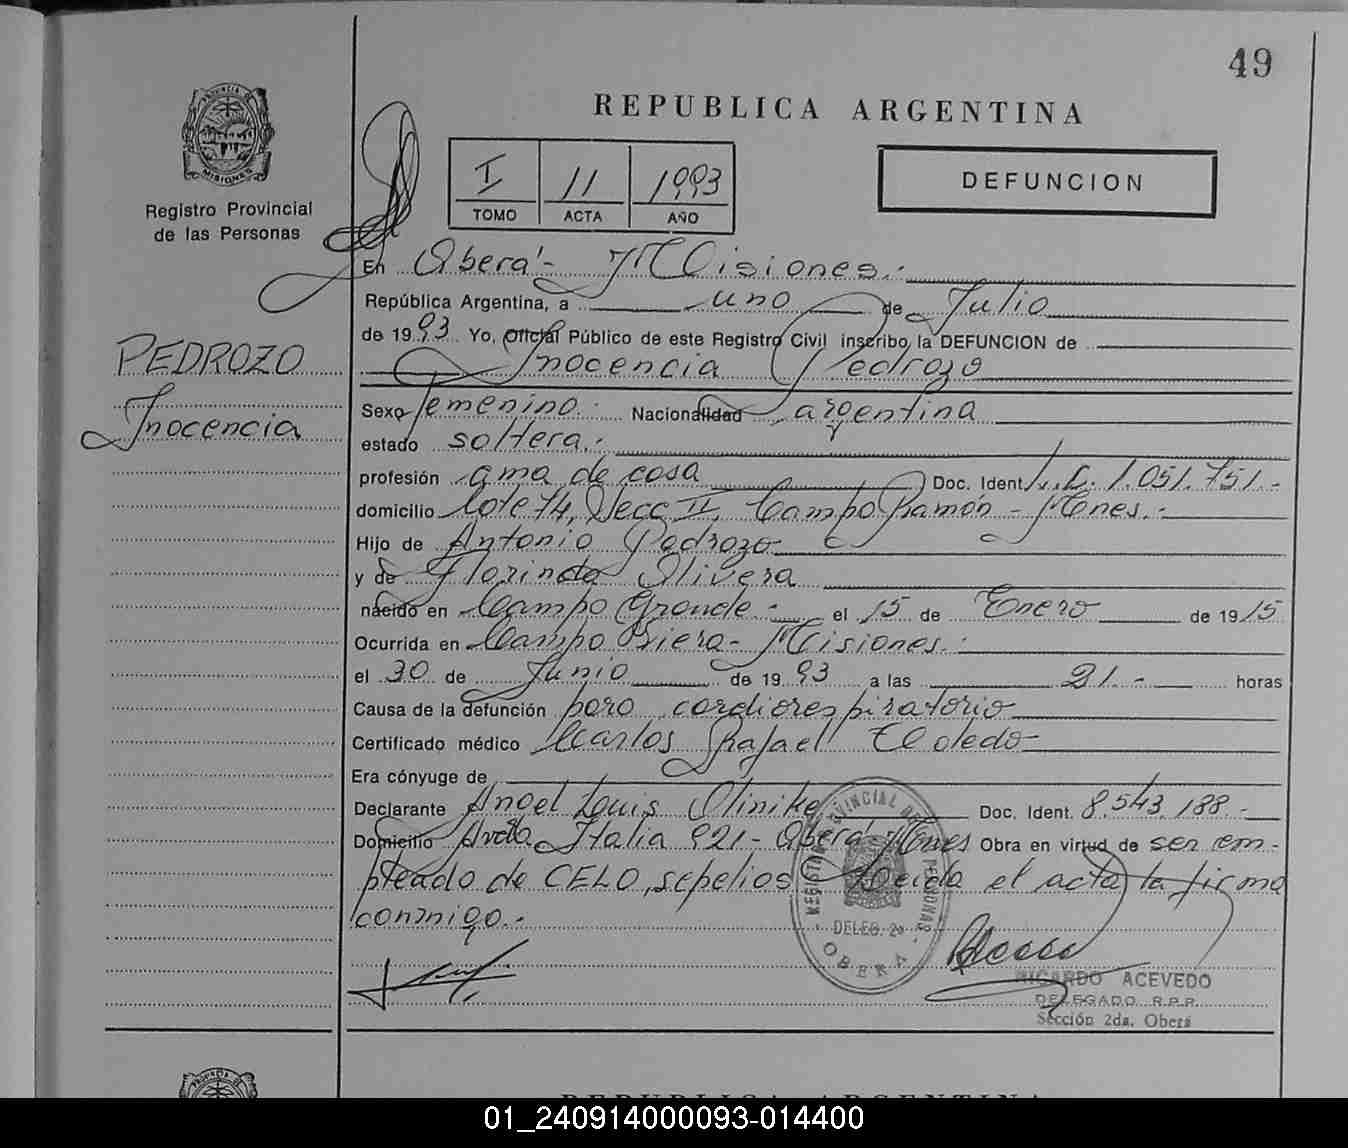 49
REPUBLICA ARGENTINA
I 11 1993
TOMO ACTA AÑO
DEFUNCION
MISIONES
Registro Provincial
de las Personas
PEDROZO
Inocencia
En Oberá- Misiones.-
República Argentina, a uno de Julio
de 1993. Yo, Oficial Público de este Registro Civil inscribo la DEFUNCION de
Inocencia Pedrozo
Sexo femenino. Nacionalidad argentina
estado soltera.-
profesión ama de casa Doc. Ident. L.C. 1.051.751.-
domicilio Lote 74, Secc II, Campo Ramón - Mnes.-
Hijo de Antonio Pedrozo
y de Florinda Olivera
nacido en Campo Grande.- el 15 de Enero de 1915
Ocurrida en Campo Viera- Misiones.-
el 30 de Junio de 1993 a las 21.- horas
Causa de la defunción paro cardiorespiratorio
Certificado médico Carlos Rafael Toledo-
Era cónyuge de
Declarante Angel Luis Olinike Doc. Ident. 8.543.188.-
Domicilio Avda Italia 921- Oberá- Mnes Obra en virtud de ser em-
pleado de CELO, sepelios Leida el acta, la firma
conmigo.-
DELEG. 2a
OBERA
RICARDO ACEVEDO
DELEGADO R.P.P.
Sección 2da. Oberá
REPUBLICA ARGENTINA
01_240914000093-014400